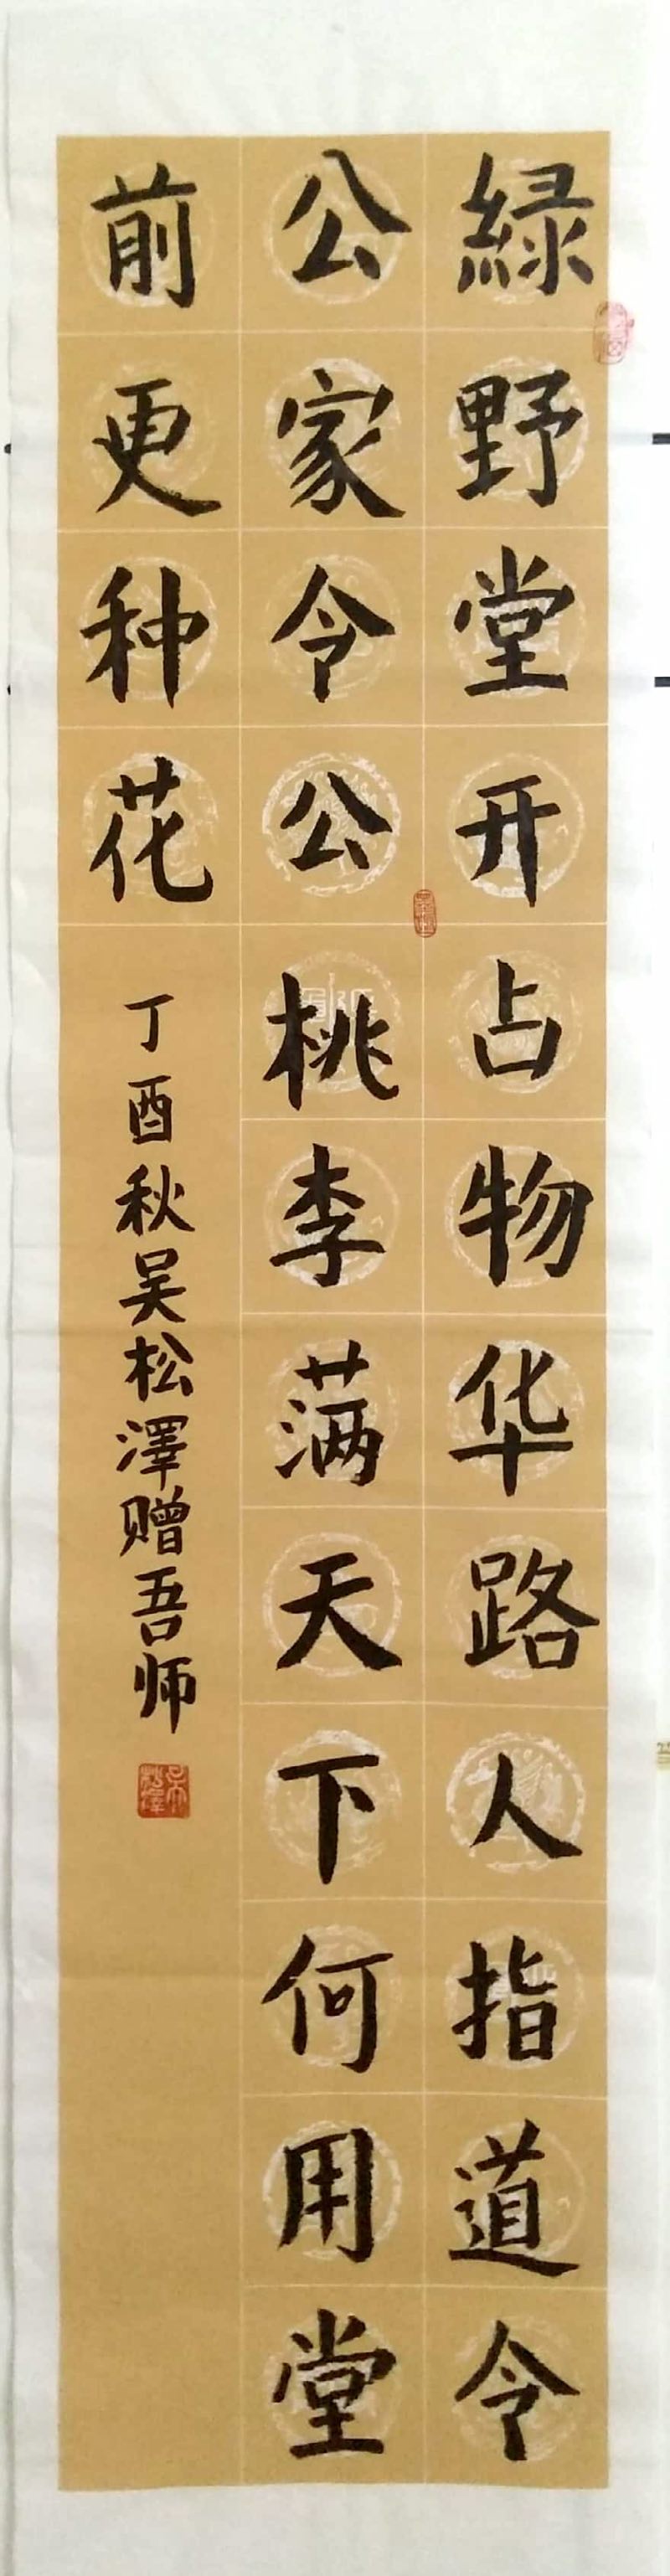 緑野堂开占物华路人指道令
公家令公桃李满天下何用堂
前更种花
丁酉秋吴松澤赠吾师